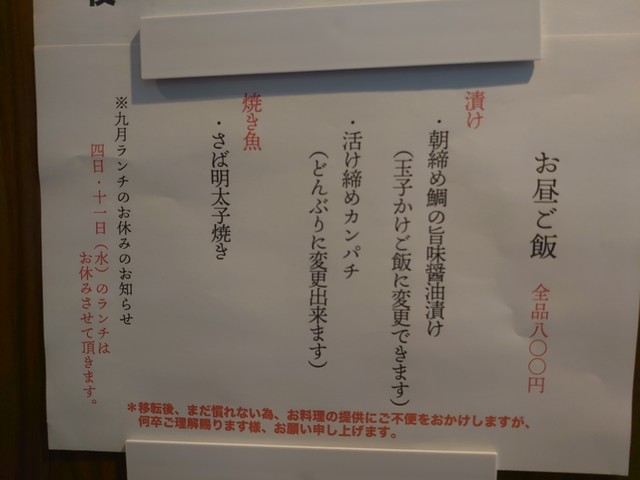 お昼ご飯　全品八〇〇円
漬け
・朝締め鯛の旨味醤油漬け
（玉子かけご飯に変更できます）
・活け締めカンパチ
（どんぶりに変更出来ます）
焼き魚
・さば明太子焼き
※九月ランチのお休みのお知らせ
四日・十一日（水）のランチは
お休みさせて頂きます。
＊移転後、まだ慣れない為、お料理の提供にご不便をおかけしますが、
何卒ご理解賜ります様、お願い申し上げます。